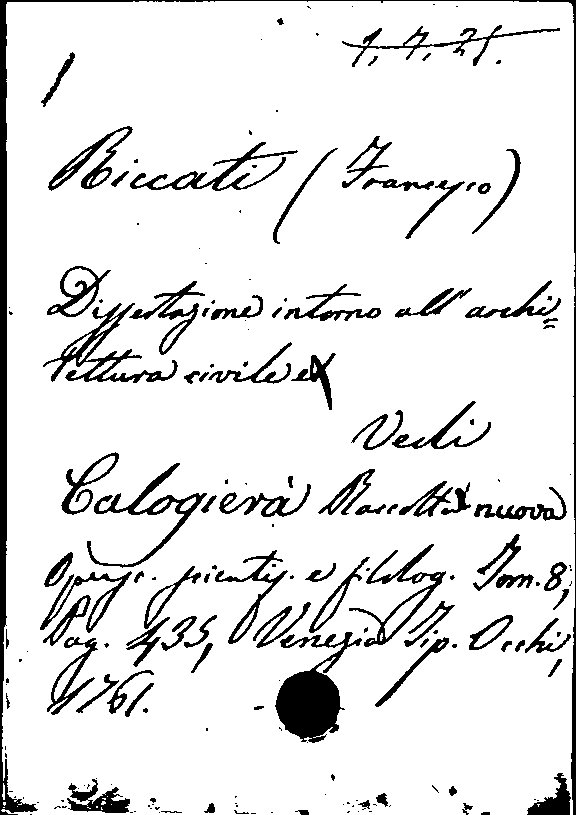 1. 7. 21.
1
Riccati (Francesco)
Dissertazione intorno all' archi=
tettura civile e
Vedi
Calogierà Raccolta nuova
Opusc. scientif. e filolog. Tom. 8,
Pag. 435, Venezia Tip. Occhi,
1761.